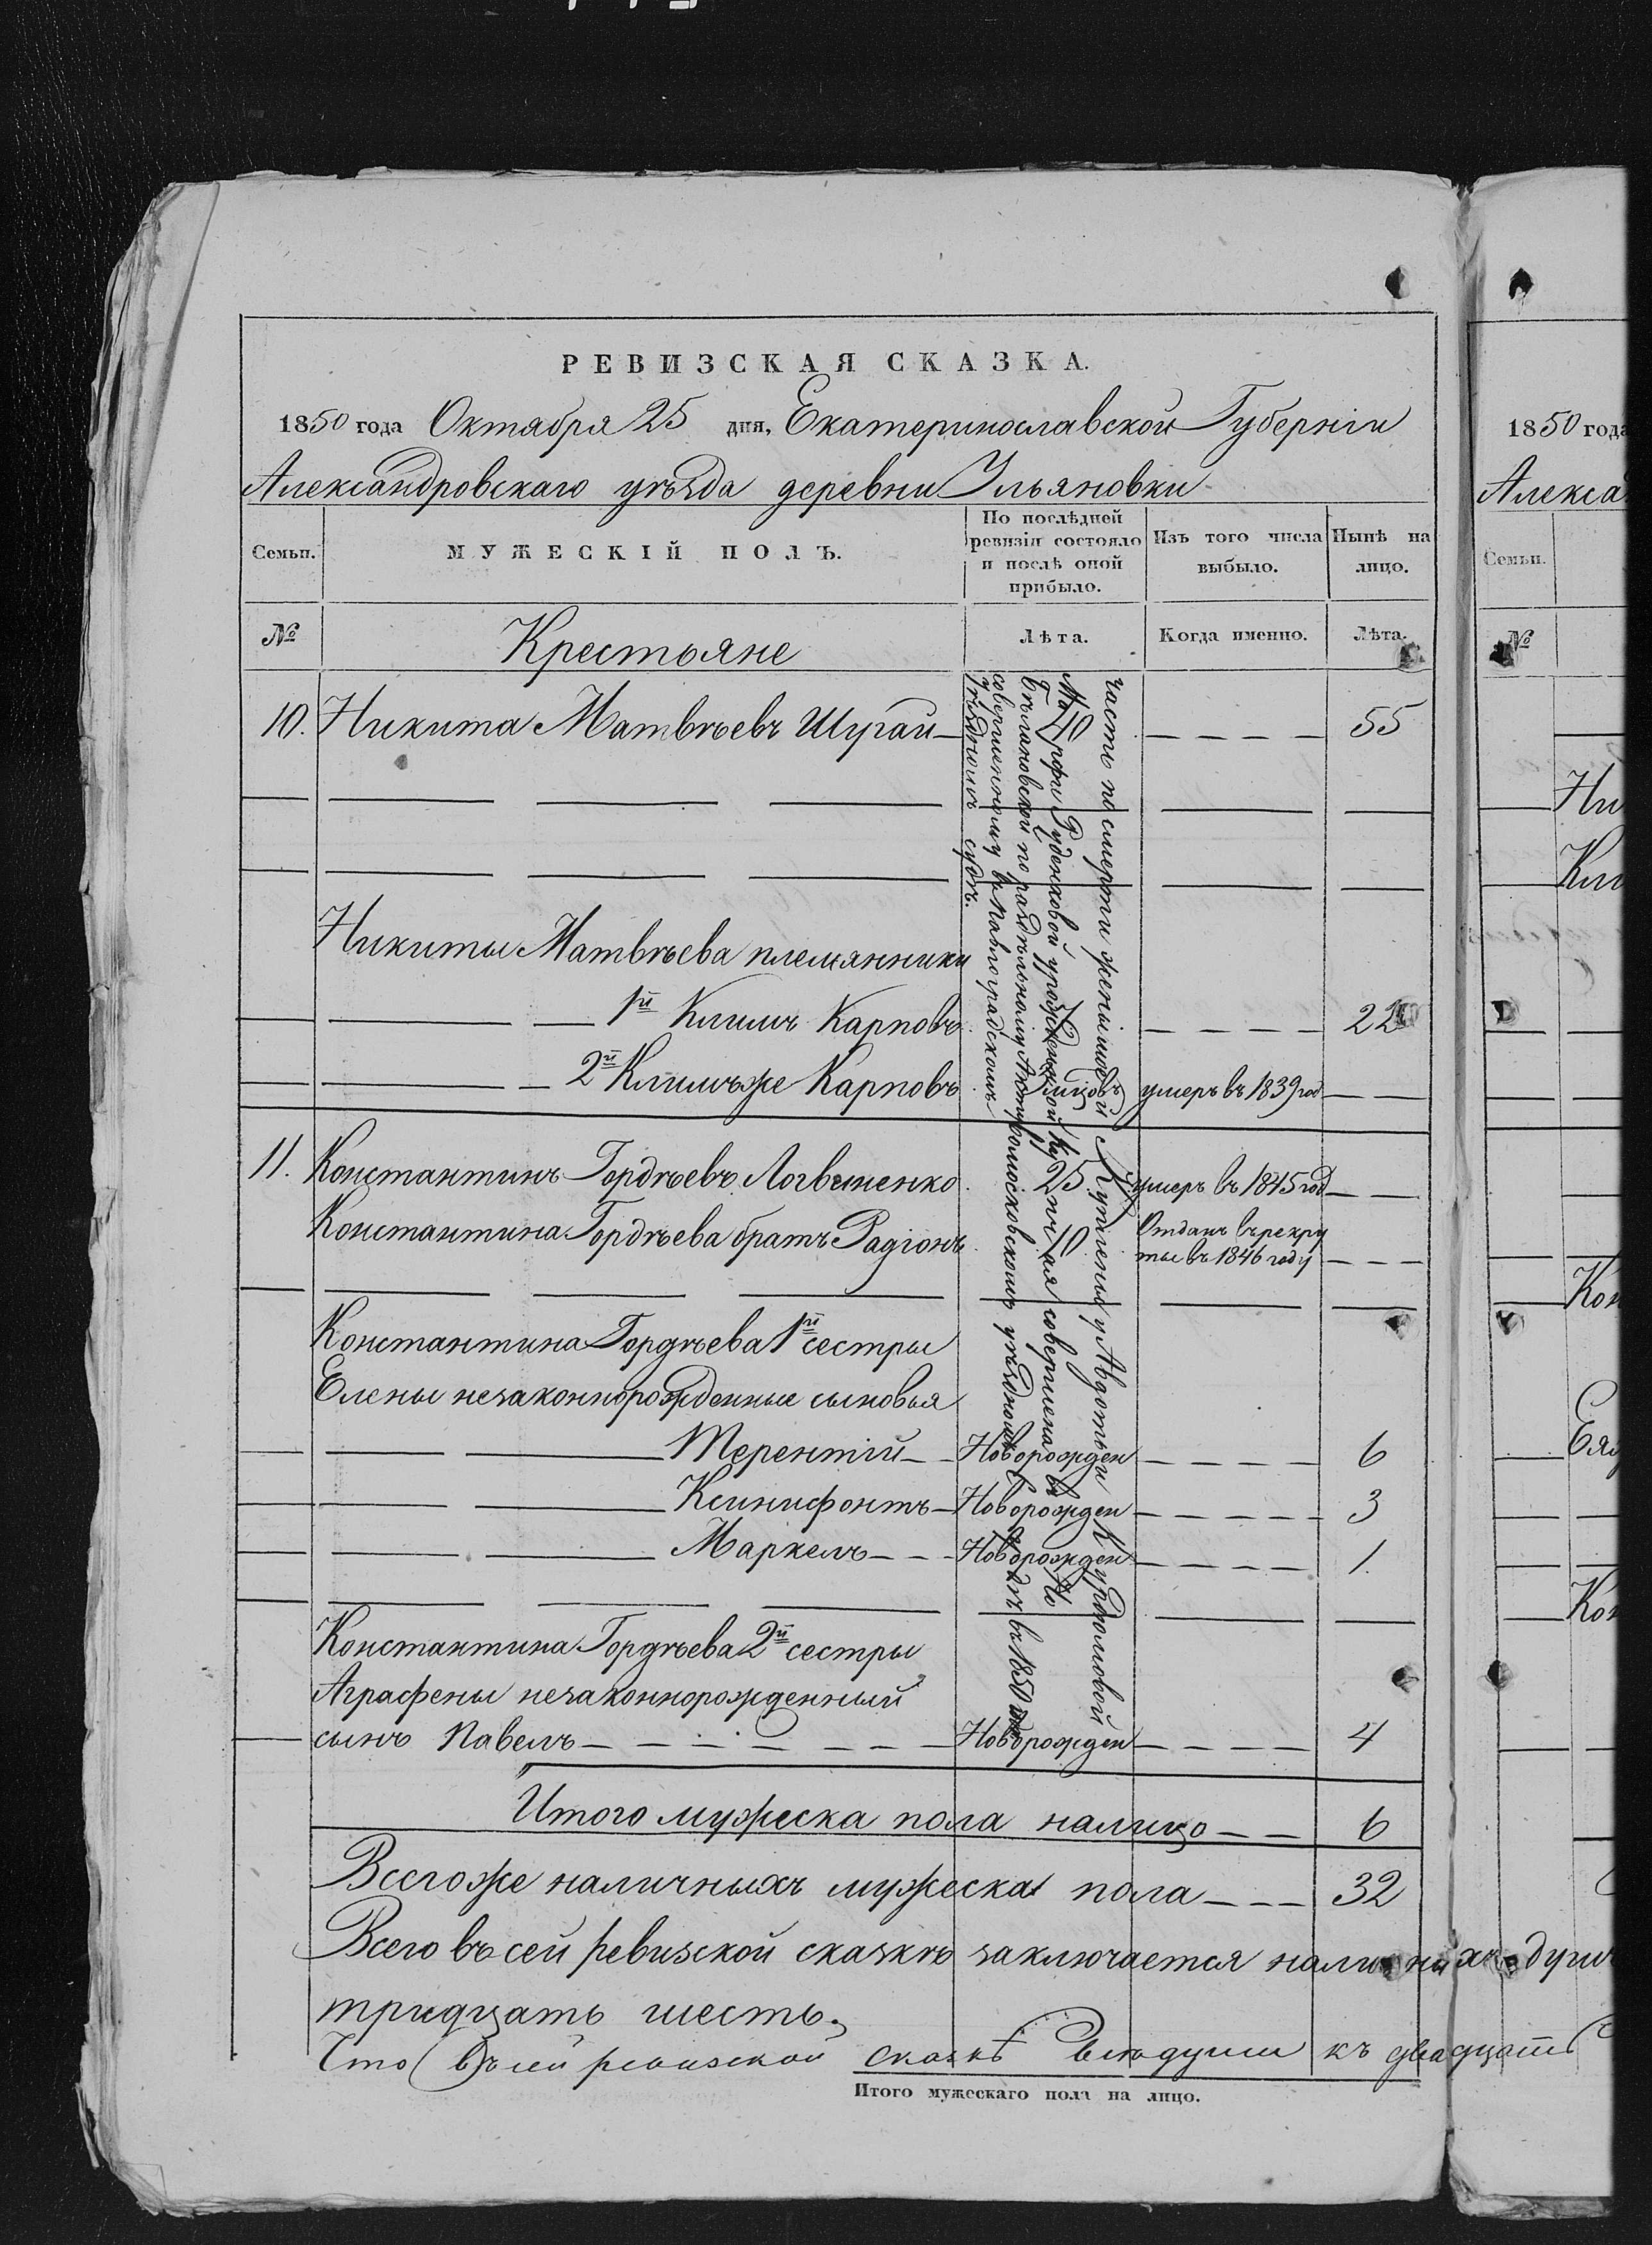 РЕВИЗСКАЯ СКАЗКА.
1850 года Октября 25 дня, Екатеринославской Губерніи
Александровскаго уѣзда деревни Ульяновки
Семьи.
МУЖЕСКІЙ ПОЛЪ.
По послѣдней ревизіи состояло и послѣ оной прибыло.
Изъ того числа выбыло.
Нынѣ на лицо.
№
Крестьяне
Лѣта.
Когда именно.
Лѣта.
10. Никита Матвѣевъ Шугай 40 55
Никиты Матвѣева племянники
1й Климъ Карповъ 22
2й Климъ же Карповъ умеръ въ 1839 год
11. Константинъ Гордѣевъ Логвиненко 25 умеръ въ 1845 год
Константина Гордѣева братъ Радіонъ 10 Отданъ въ рекру
ты въ 1846 году
Константина Гордѣева 1й сестры
Елены незаконнорожденные сыновья
Терентій Новорожден 6
Ксинифонтъ Новорожден 3
Маркелъ Новорожден 1.
Константина Гордѣева 2й сестры
Аграфены незаконнорожденный
сынъ Павелъ Новорожден 4
Итого мужеска пола налицо 6
Всего же наличныхъ мужеска пола 32
Всего въ сей ревизской сказкѣ заключается наличныхъ душъ
тридцать шесть.
Что въ сей ревизской сказкѣ къ двадцати
Итого мужескаго пола на лицо.
часть по смерти жены моей купленны у Авдотьи
Руденковой
по раздѣльному
совершенному въ Павлоградскомъ
уѣздномъ судѣ.
въ 1850
1850 года
Алекса
Семьи.
№
Ни
Кли
Кон
Кон